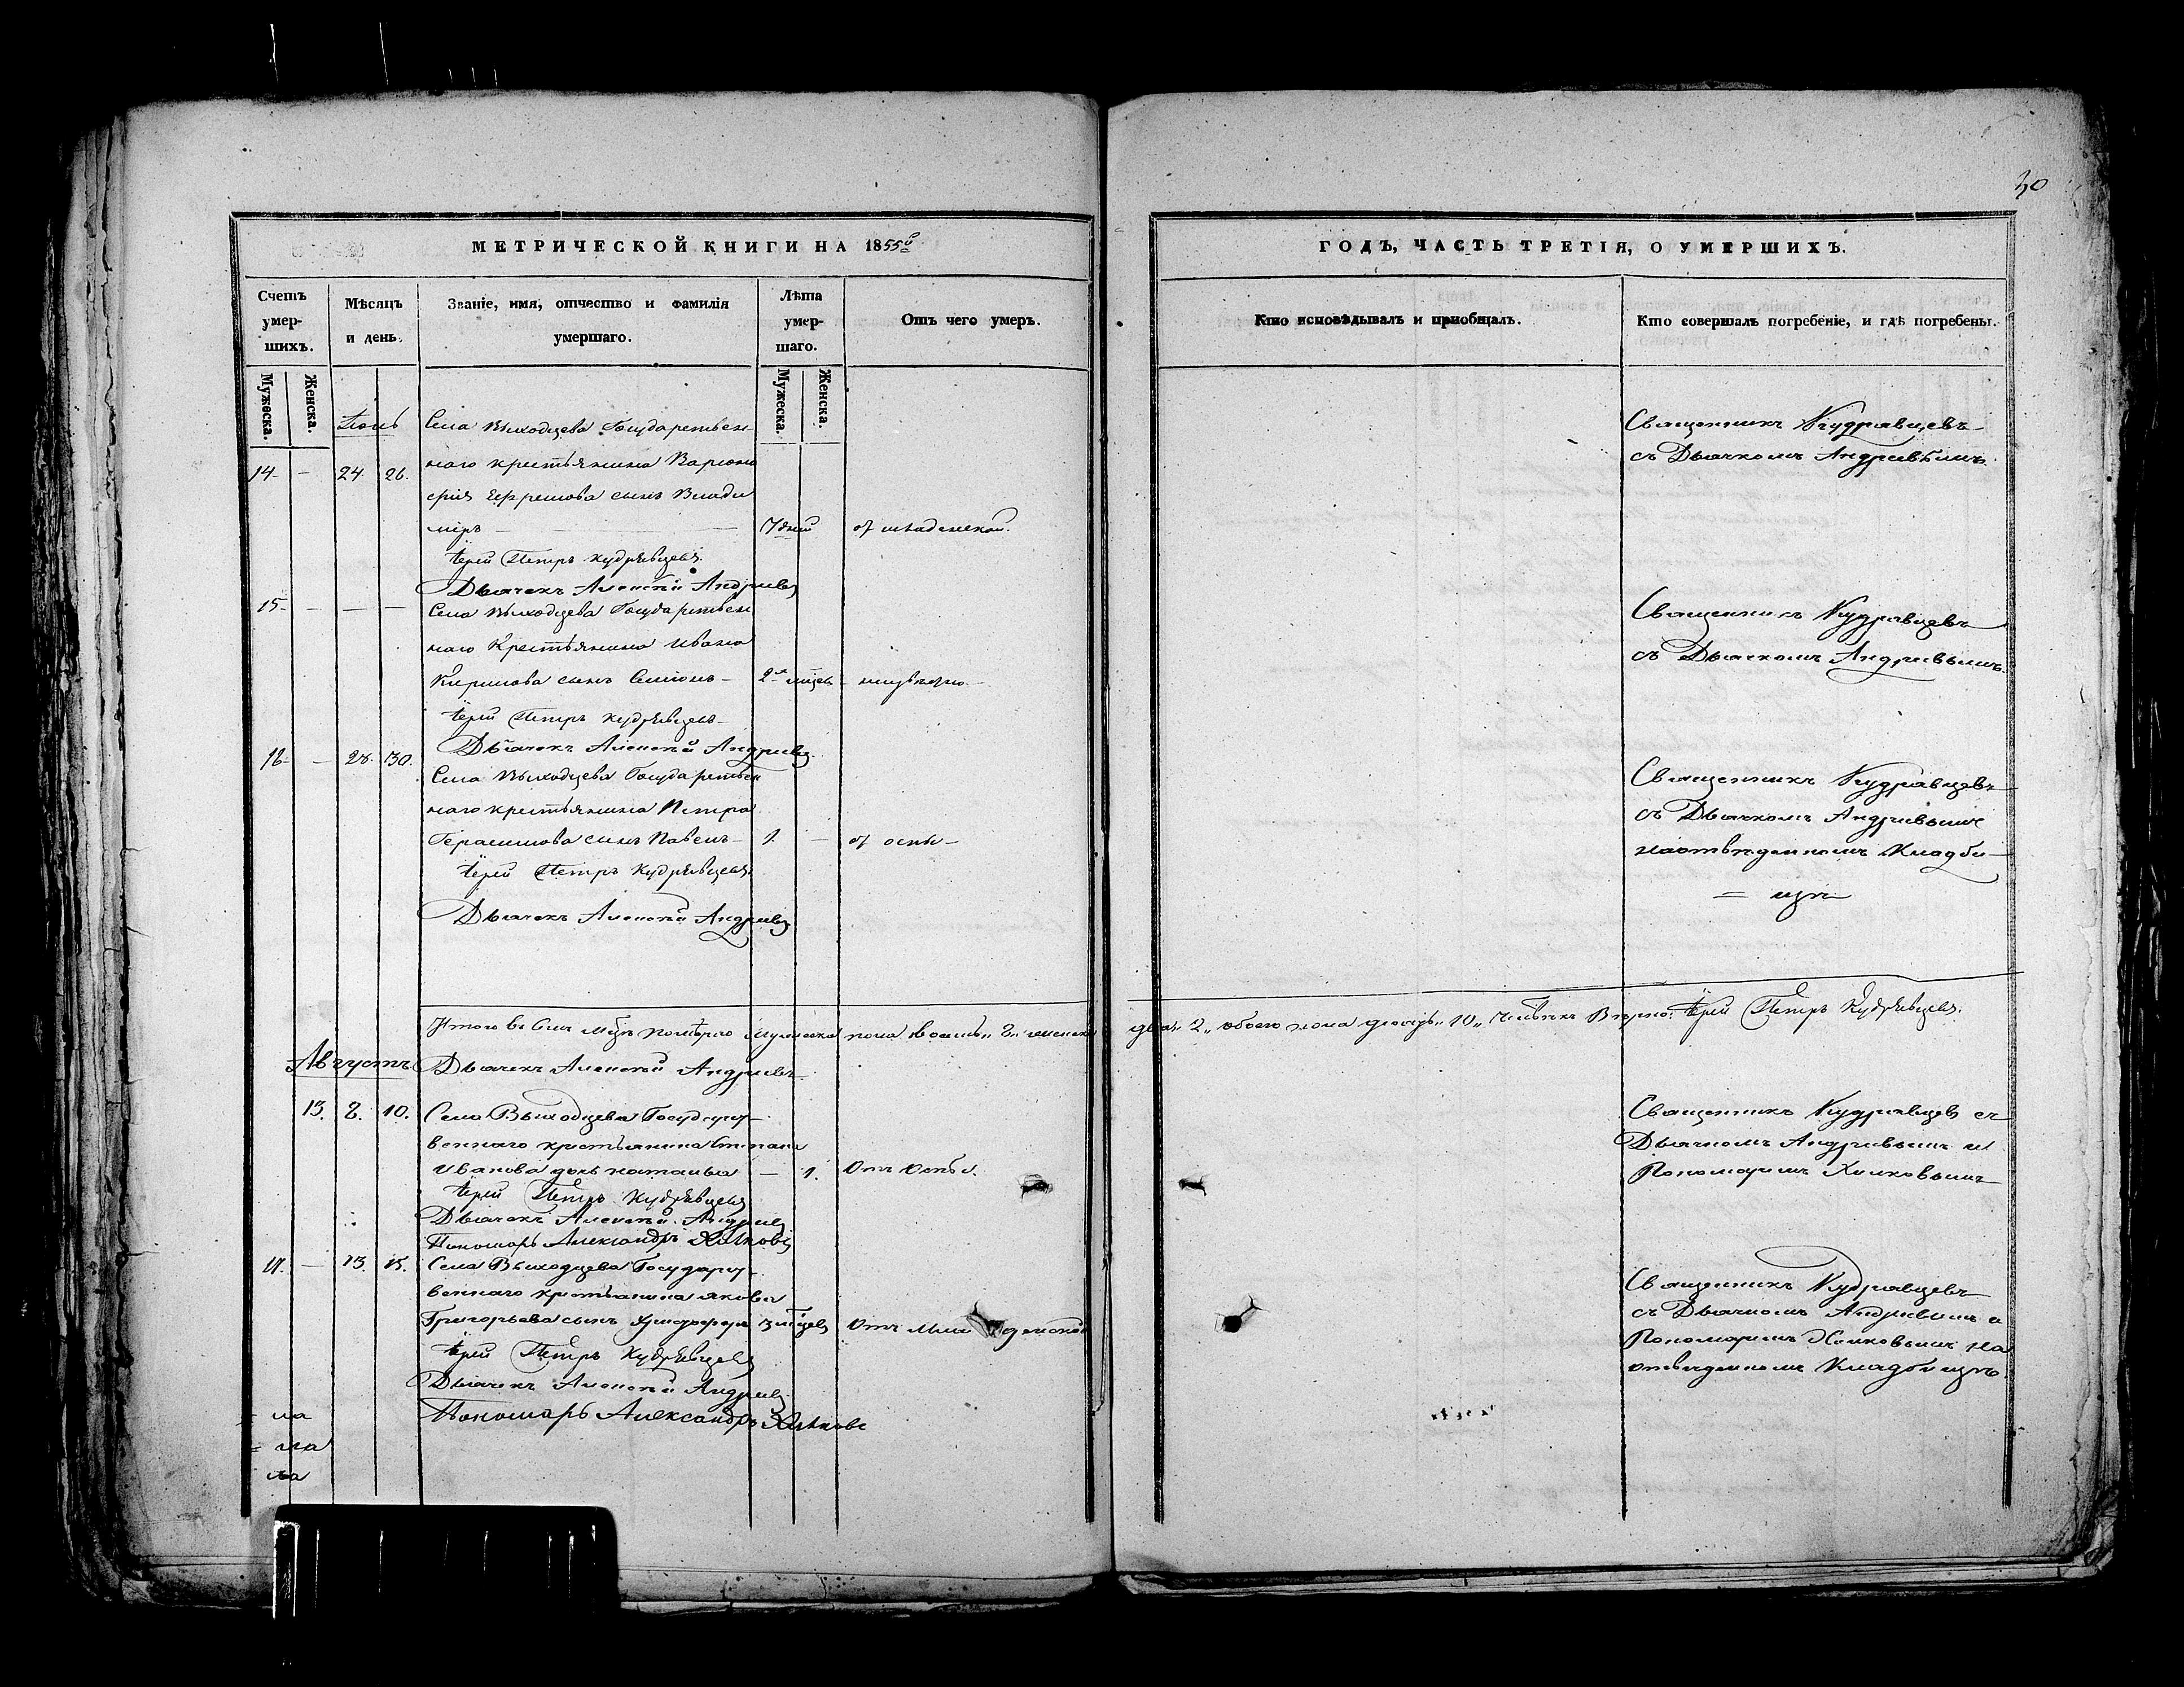 30
МЕТРИЧЕСКОЙ КНИГИ НА 1855й
ГОДЪ, ЧАСТЬ ТРЕТІЯ, О УМЕРШИХЪ.
Счетъ умер-шихъ.
Мѣсяцъ и день.
Званіе, имя, отчество и фамилія умершаго.
Лѣта умер-шаго.
Отъ чего умеръ.
Кто исповѣдывалъ и приобщалъ.
Кто совершалъ погребеніе, и гдѣ погребены.
Мужеска. Женска.
Мужеска. Женска.
Села Выходцева Государствен
14 - 24. 26. наго крестьянина
Ефремова сынъ Влади
міръ 7 дней от младенской.
Іерей Петръ Кудрявцевъ.
Дьячекъ Алексѣй Андриевъ
Священникъ Кудрявцевъ
съ Дьячкомъ Андриевымъ.
15 - - - Села Выходцева Государствен
наго Крестьянина Ивана
Кирилова сынъ Симіонъ - 2х
Іерей Петръ Кудрявцевъ
Дьячекъ Алексѣй Андриевъ
Священникъ Кудрявцевъ
съ Дьячкомъ Андриевымъ
16 - 28. 30.
Села Выходцева Государствен
наго крестьянина Петра
Герасимова сынъ Павелъ - 1. - от оспы -
Іерей Петръ Кудрявцевъ
Дьячекъ Алексѣй Андриевъ
Священникъ Кудрявцевъ
съ Дьячкомъ Андриевымъ
на отведенномъ Кладби
= щѣ
Итого въ Іюлѣ мцѣ померло мужеска пола восемь „8„ женска двѣ „2„ обоего пола десять „10„ человѣкъ Вѣрно: Іерей Петръ Кудрявцевъ.
Августъ
Дьячекъ Алексѣй Андриевъ
13. 8. 10. Села Выходцева Государст-
веннаго крестьянина Стпана
Иванова дочь наталья - 1. Отъ Оспы.
Іерей Петръ Кудрявцевъ
Дьячекъ Алексѣй Андриевъ
Пономарь Александръ Хилковъ
Священникъ Кудрявцев съ
Дьячкомъ Андриевымъ и
Пономаремъ Хилковымъ
- 13. 15. Села Выходцева Государст-
веннаго крестьянина якова
Григорьева сынъ 3 мцев Отъ младенской
Іерей Петръ Кудрявцевъ
Дьячекъ Алексѣй Андриевъ
Пономарь Александръ Хилковъ
Священникъ Кудрявцевъ
съ Дьячкомъ Андриевымъ и
Пономаремъ Хилковымъ на
отведенномъ Кладбищѣ.